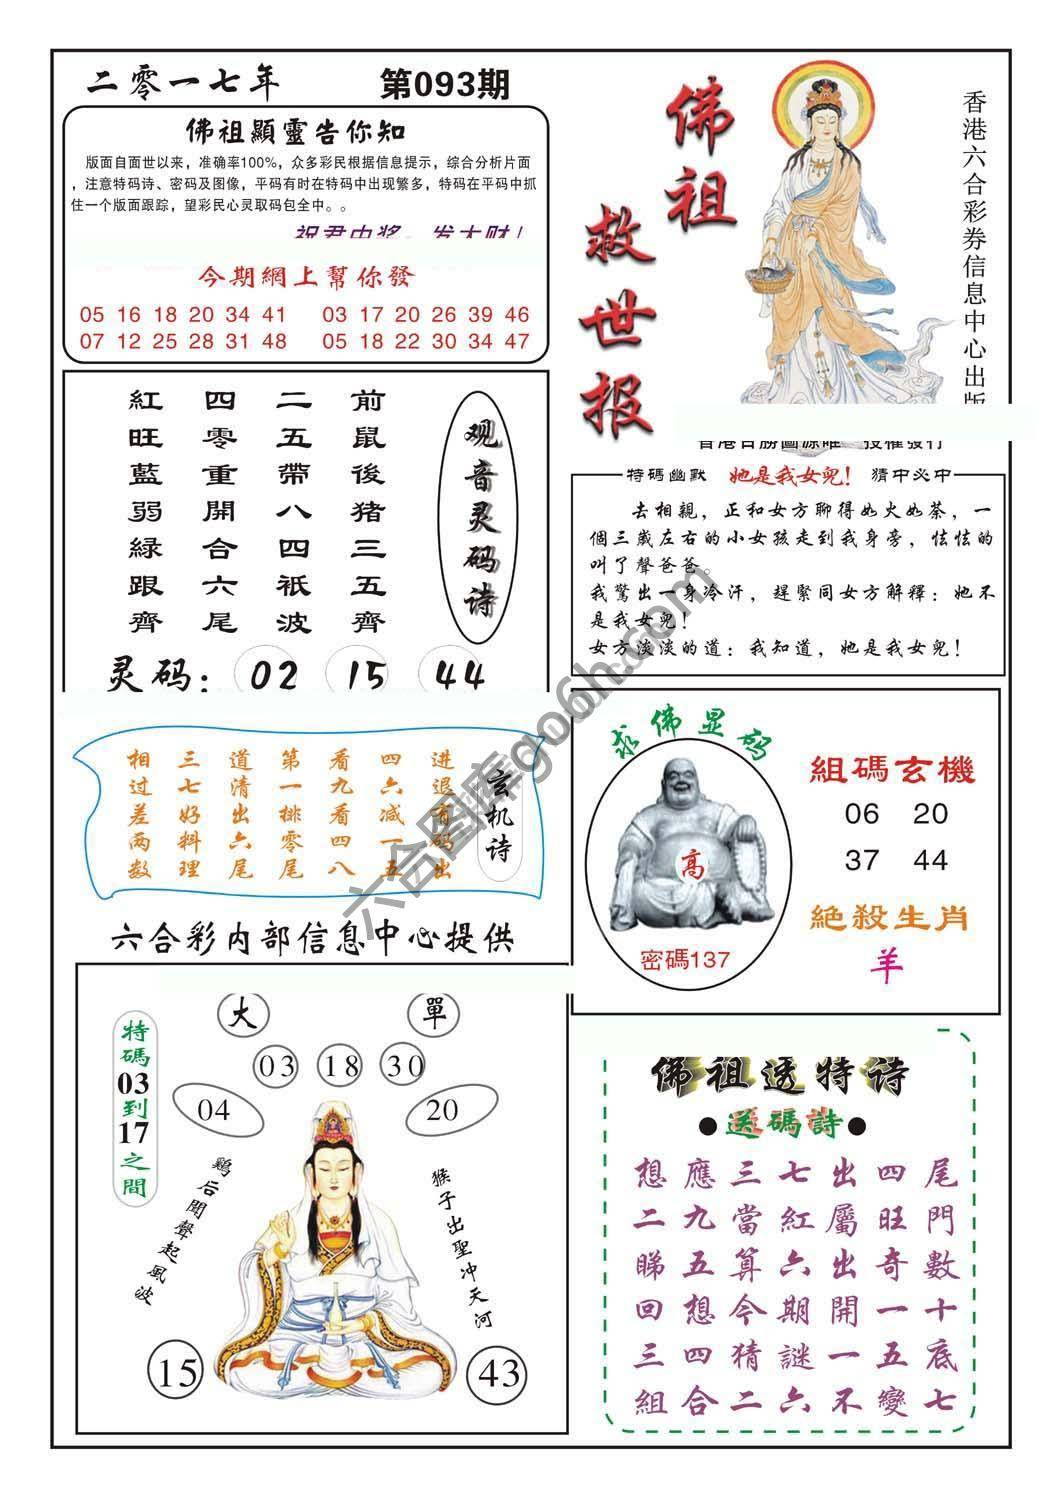 二零一七年 第093期
佛祖顯靈告你知
版面自面世以来，准确率100%，众多彩民根据信息提示，综合分析片面
，注意特码诗、密码及图像，平码有时在特码中出现繁多，特码在平码中抓
住一个版面跟踪，望彩民心灵取码包全中。。
祝君中奖，发大财！
今期網上幫你發
05 16 18 20 34 41 03 17 20 26 39 46
07 12 25 28 31 48 05 18 22 30 34 47
佛祖
救世报
香港六合彩券信息中心出版
前鼠後猪三五齊
二五帶八四祇波
四零重開合六尾
紅旺藍弱緑跟齊
观音灵码诗
灵码：02 15 44
特碼幽默 她是我女兒！ 猜中必中
去相親，正和女方聊得如火如荼，一
個三歲左右的小女孩走到我身旁，怯怯的
叫了聲爸爸。
我驚出一身冷汗，趕緊同女方解釋：她不
是我女兒！
女方淡淡的道：我知道，她是我女兒！
玄机诗
进退有码出
四六减一五
看九看四八
第一排零尾
道清出六尾
三七好料理
相过差两数
六合彩内部信息中心提供
求佛显码
高
密碼137
組碼玄機
06 20
37 44
絶殺生肖
羊
大 單
03 18 30
04 20
特碼03到17之間
鷄后聞聲起風波
猴子出聖冲天河
15 43
佛祖透特诗
●送碼詩●
想應三七出四尾
二九當紅屬旺門
睇五算六出奇數
回想今期開一十
三四猜謎一五底
組合二六不變七
六合图库go6h.com